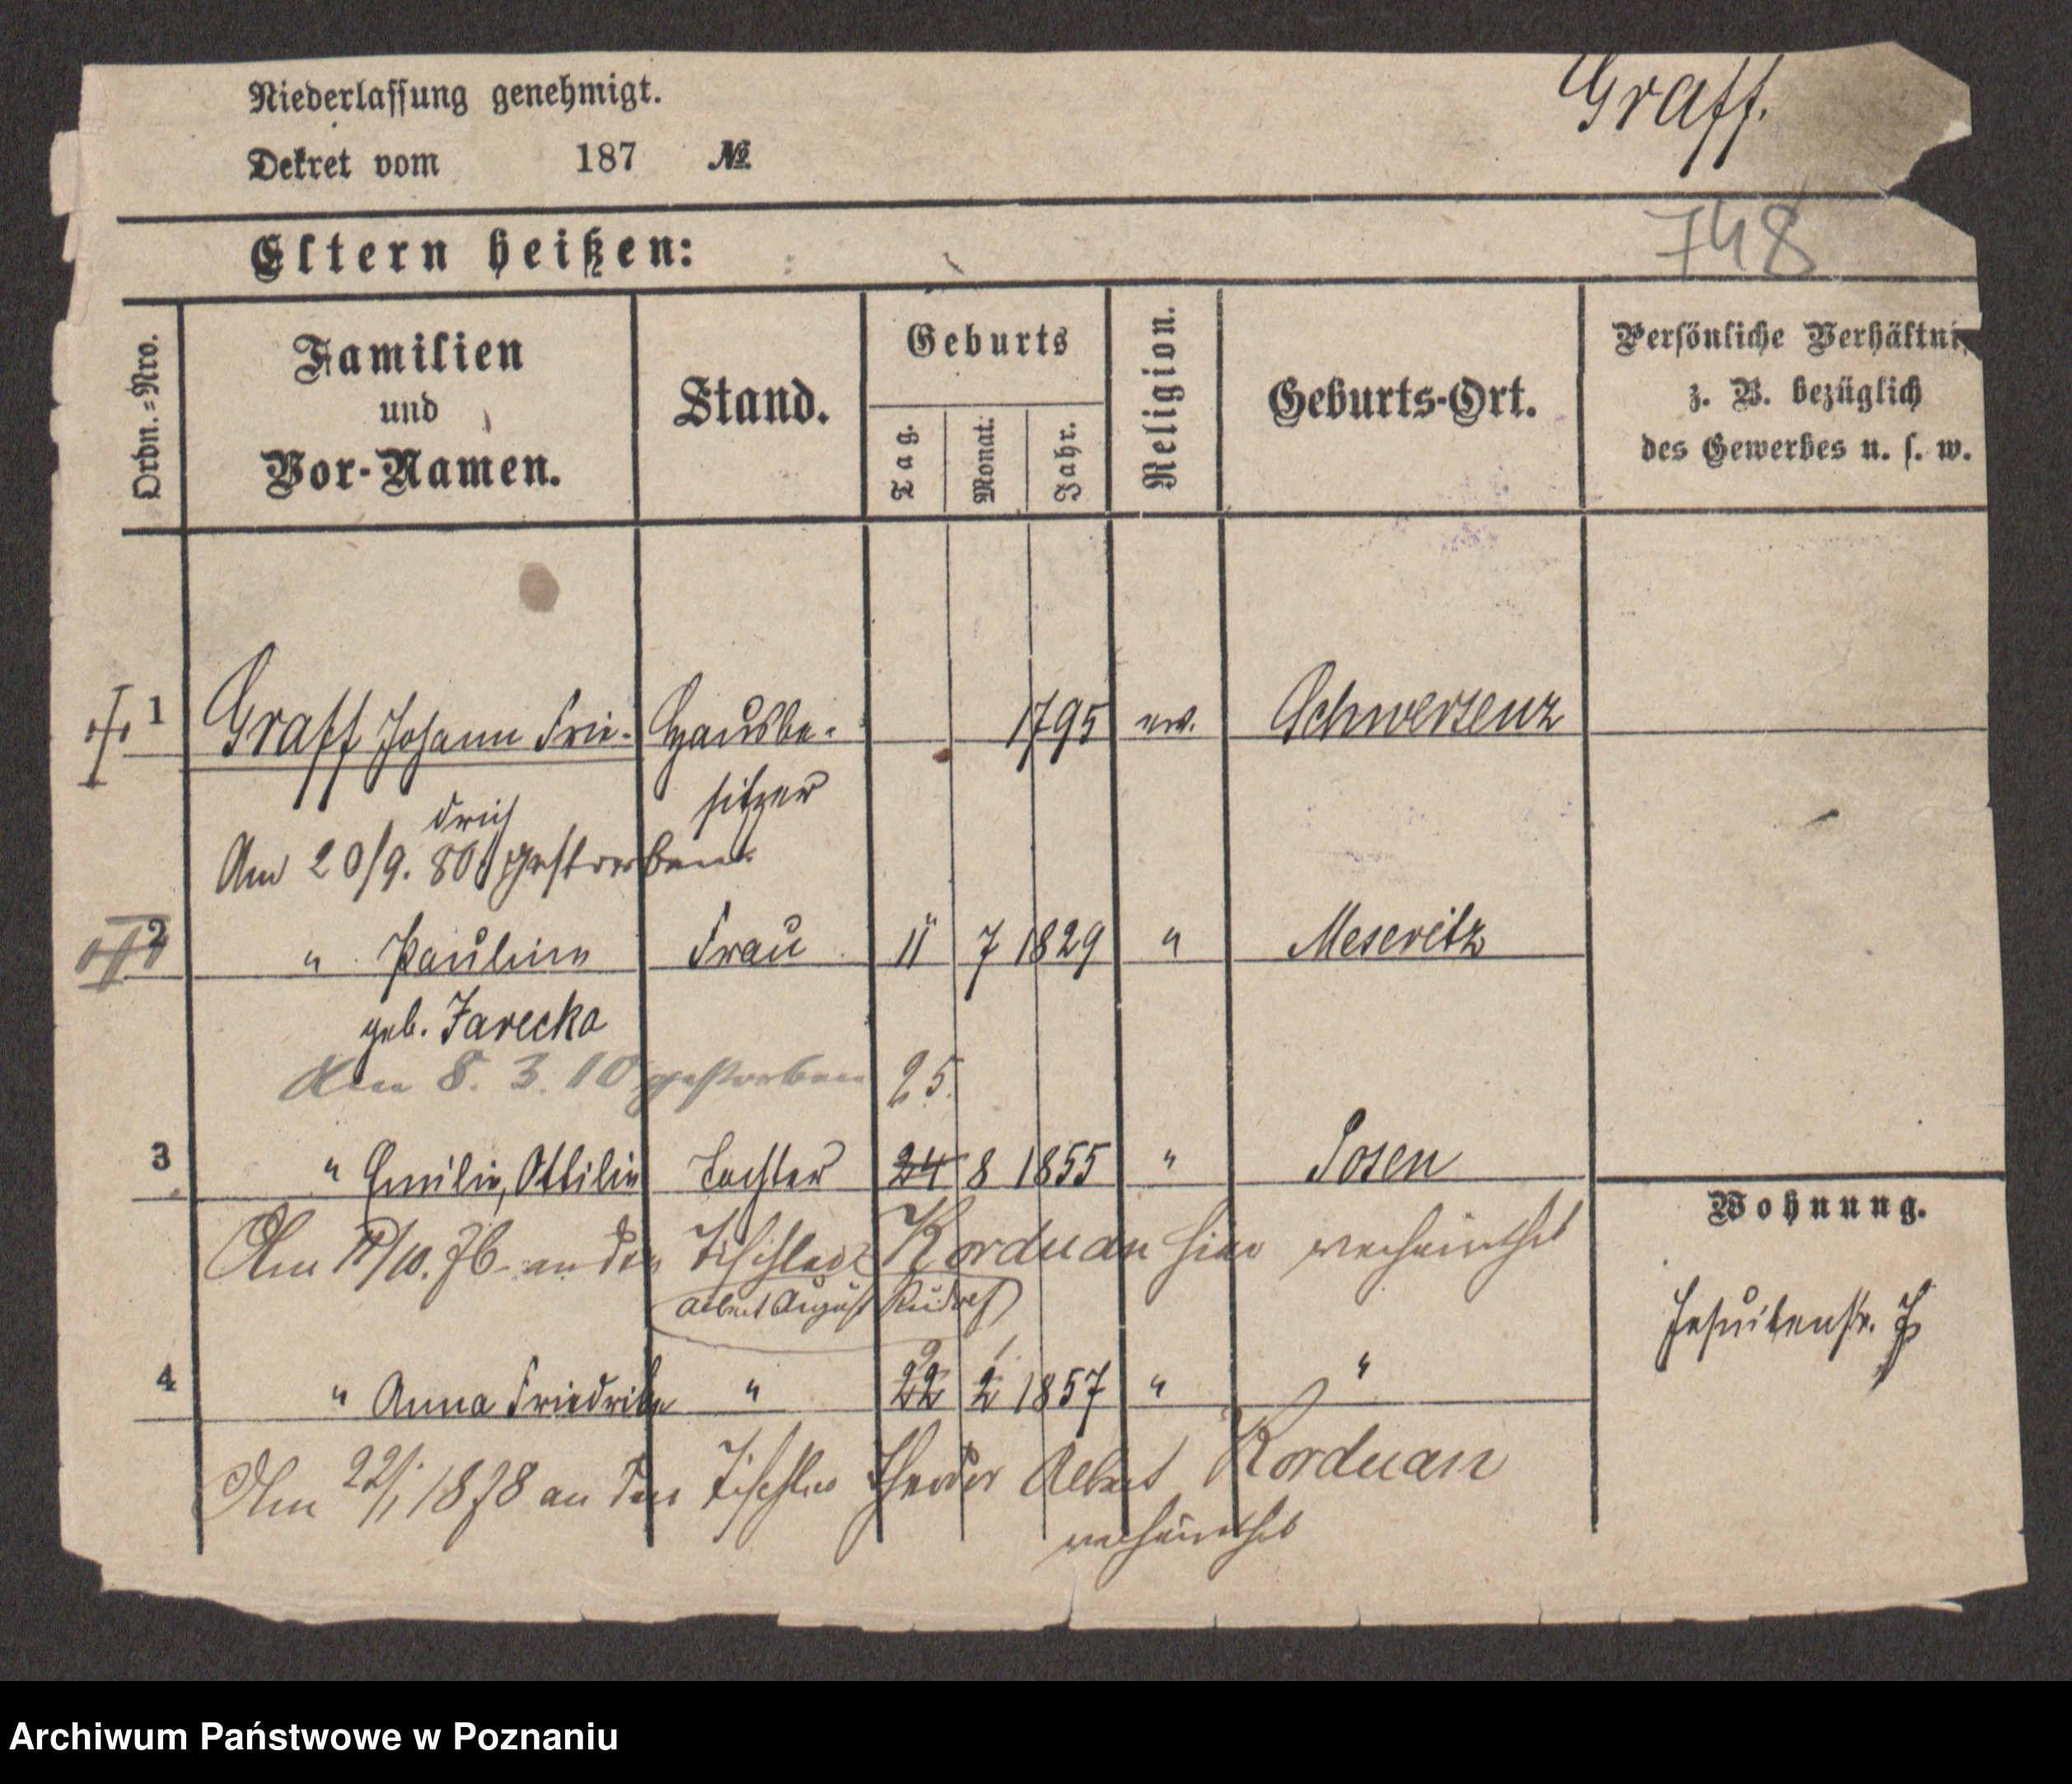 Niederlassung genehmigt.
Graff.
Dekret vom 187 №
748
Eltern heißen:
Ordn.=Nro.
Familien und Vor-Namen.
Stand.
Geburts
Tag.
Monat.
Jahr.
Religion.
Geburts-Ort.
Persönliche Verhältni
z. B. bezüglich
des Gewerbes u. s. w.
1 Graff Johann Frie- Hausbe- 1795 ev. Schwersenz
drich sitzer
Am 20/9. 80 gestorben.
2 " Pauline Frau 11 7 1829 " Meseritz
geb. Jarecka
Am 8. 3. 10 gestorben
25.
3 " Emilie, Ottilie Tochter 24 8 1855 " Posen
Am /10. 76 an den Tischler Korduan hier verheirathet
Albert August Rudolf
Wohnung.
Jesuitenstr. 7
4 " Anna Friedrike " 22 2 1857 " "
Am 22/1 1878 an den Tischler Theodor Albert Korduan
verheirathet
Archiwum Państwowe w Poznaniu